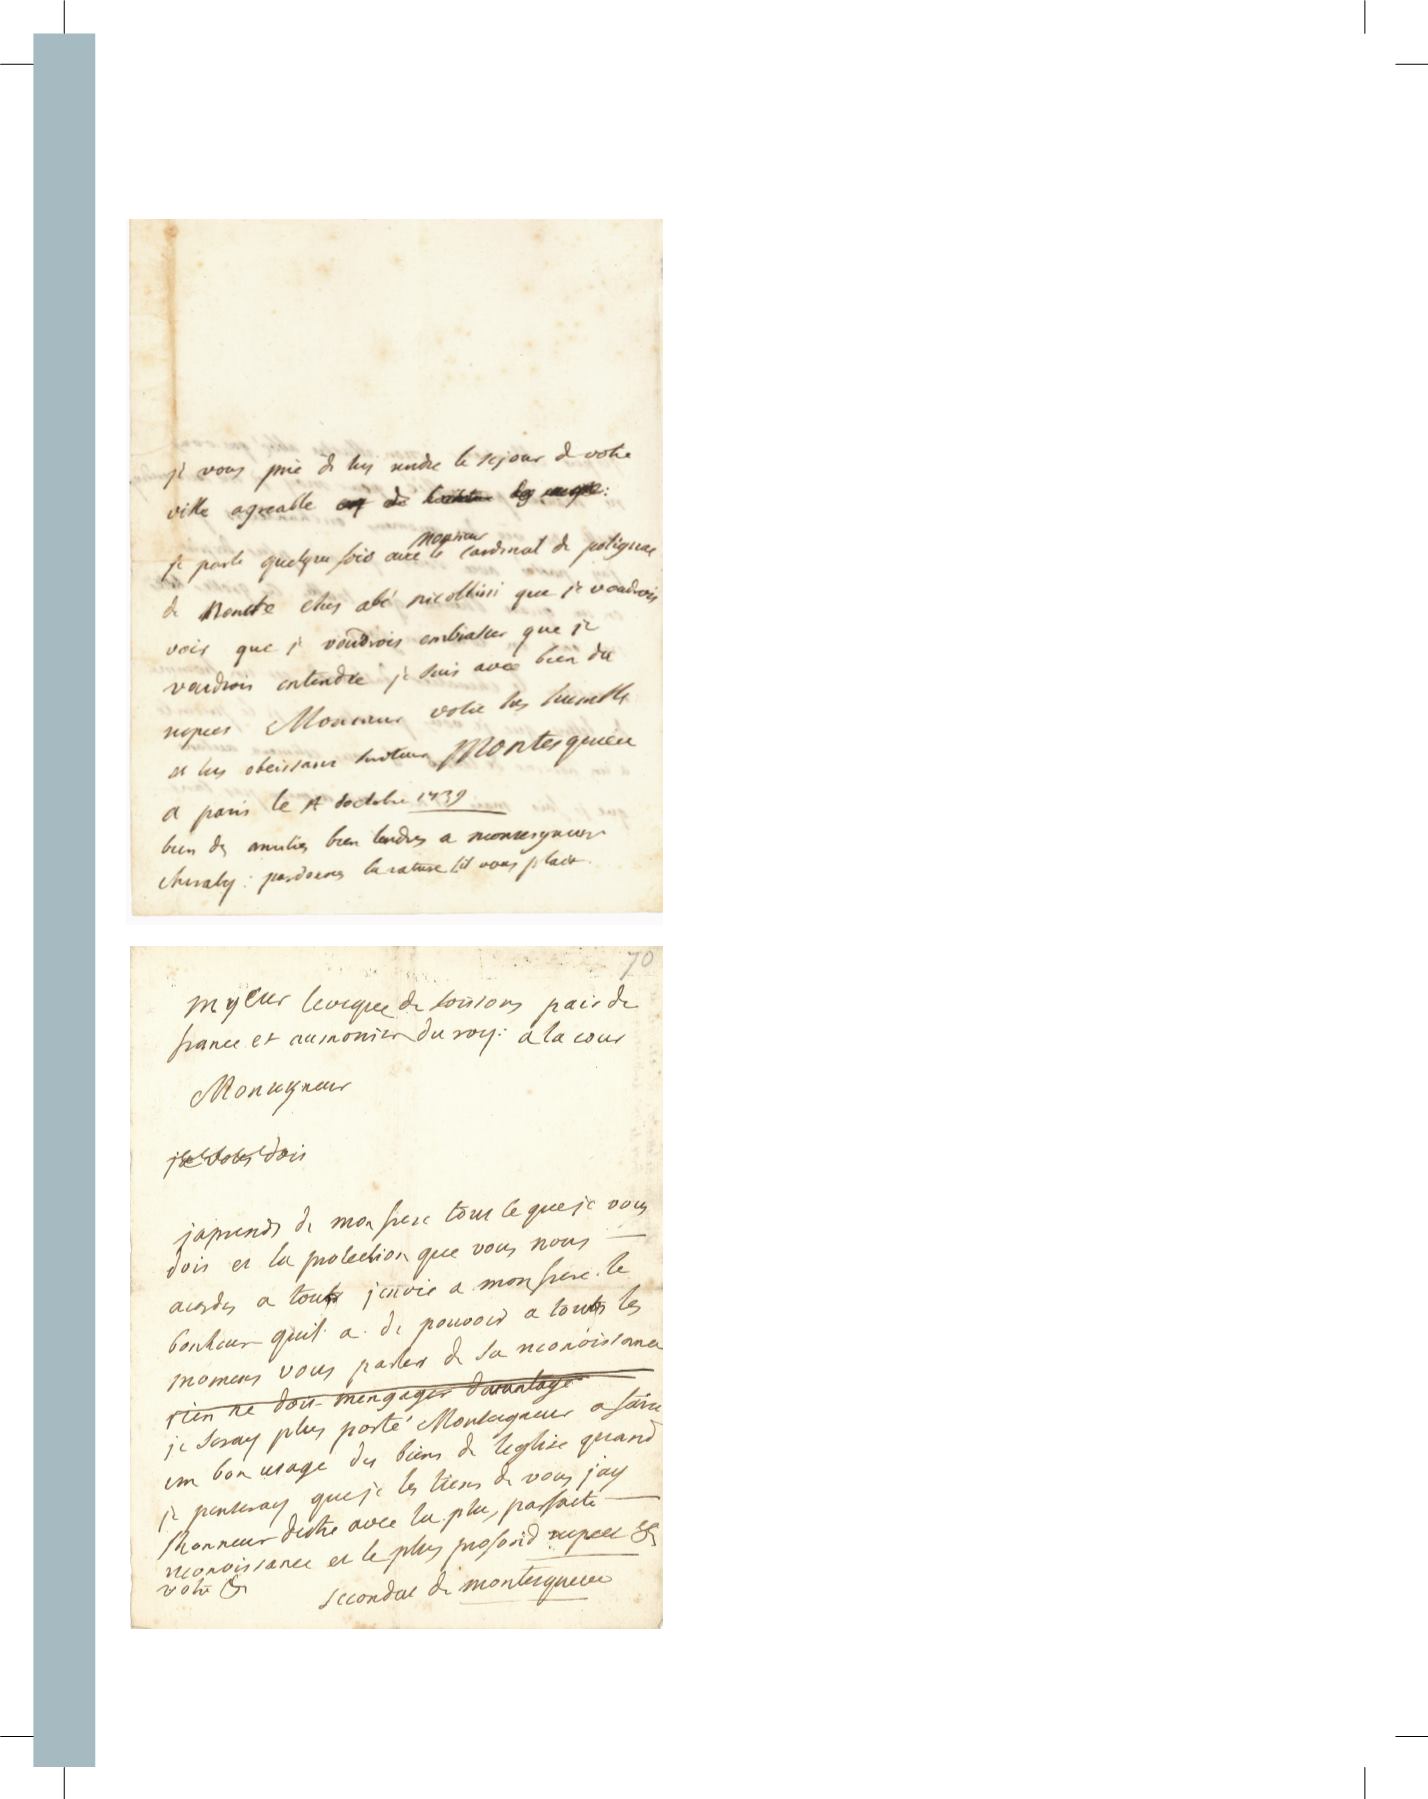 je vous prie de luy rendre le sejour de votre
ville agreable
monsieur
je parle quelque fois avec le cardinal de polignac
de cher abé nicollini que je voudrois
voir que je voudrois embrasser que je
voudrois entendre je suis avec bien du
respect Monsieur votre tres humble
et tres obeissant serviteur Montesquieu
a paris le doctobre 1739
bien des amitiés bien tendres a monseigneur
cheraty : pardonnes la rature sil vous plait
70
mgeur leveque de soissons pair de
france et aumonier du roy : a la cour
Monseigneur
je vous dois
japrends de mon frere tout ce que je vous
dois et la protection que vous nous
acordes a tous jenvie a mon frere le
bonheur quil a de pouvoir a touts les
momens vous parler de sa reconoissance
rien ne doit mengager davantage
je seray plus porté Monseigneur a faire
un bon usage des biens de leglise quand
je penseray que je les tiens de vous jay
lhonneur destre avec la plus parfaite
reconoissance et le plus profond respect &
votre &
secondat de montesquieu